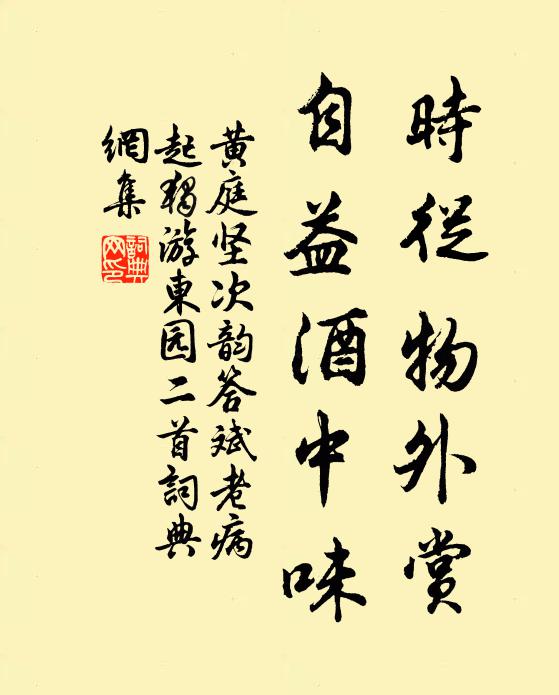 時從物外賞
自益酒中味
黄庭坚次韵答斌老病
起獨游東园二首詞典
網集
詞典
网印